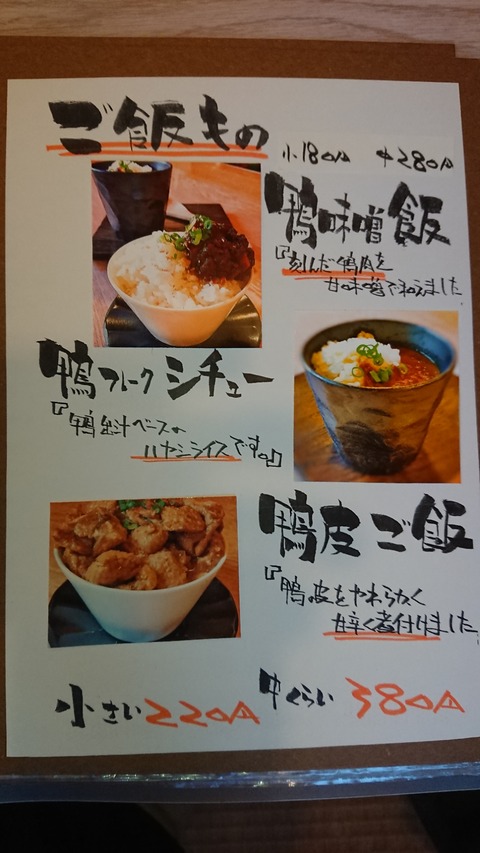 ご飯もの
小180円 中280円
鴨味噌飯
『刻んだ鴨肉を
甘味噌で和えました
鴨フレークシチュー
『鴨出汁ベースの
ハヤシライスです。』
鴨皮ご飯
『鴨の皮をやわらかく
甘辛く煮付けました
小さい220円
中くらい380円